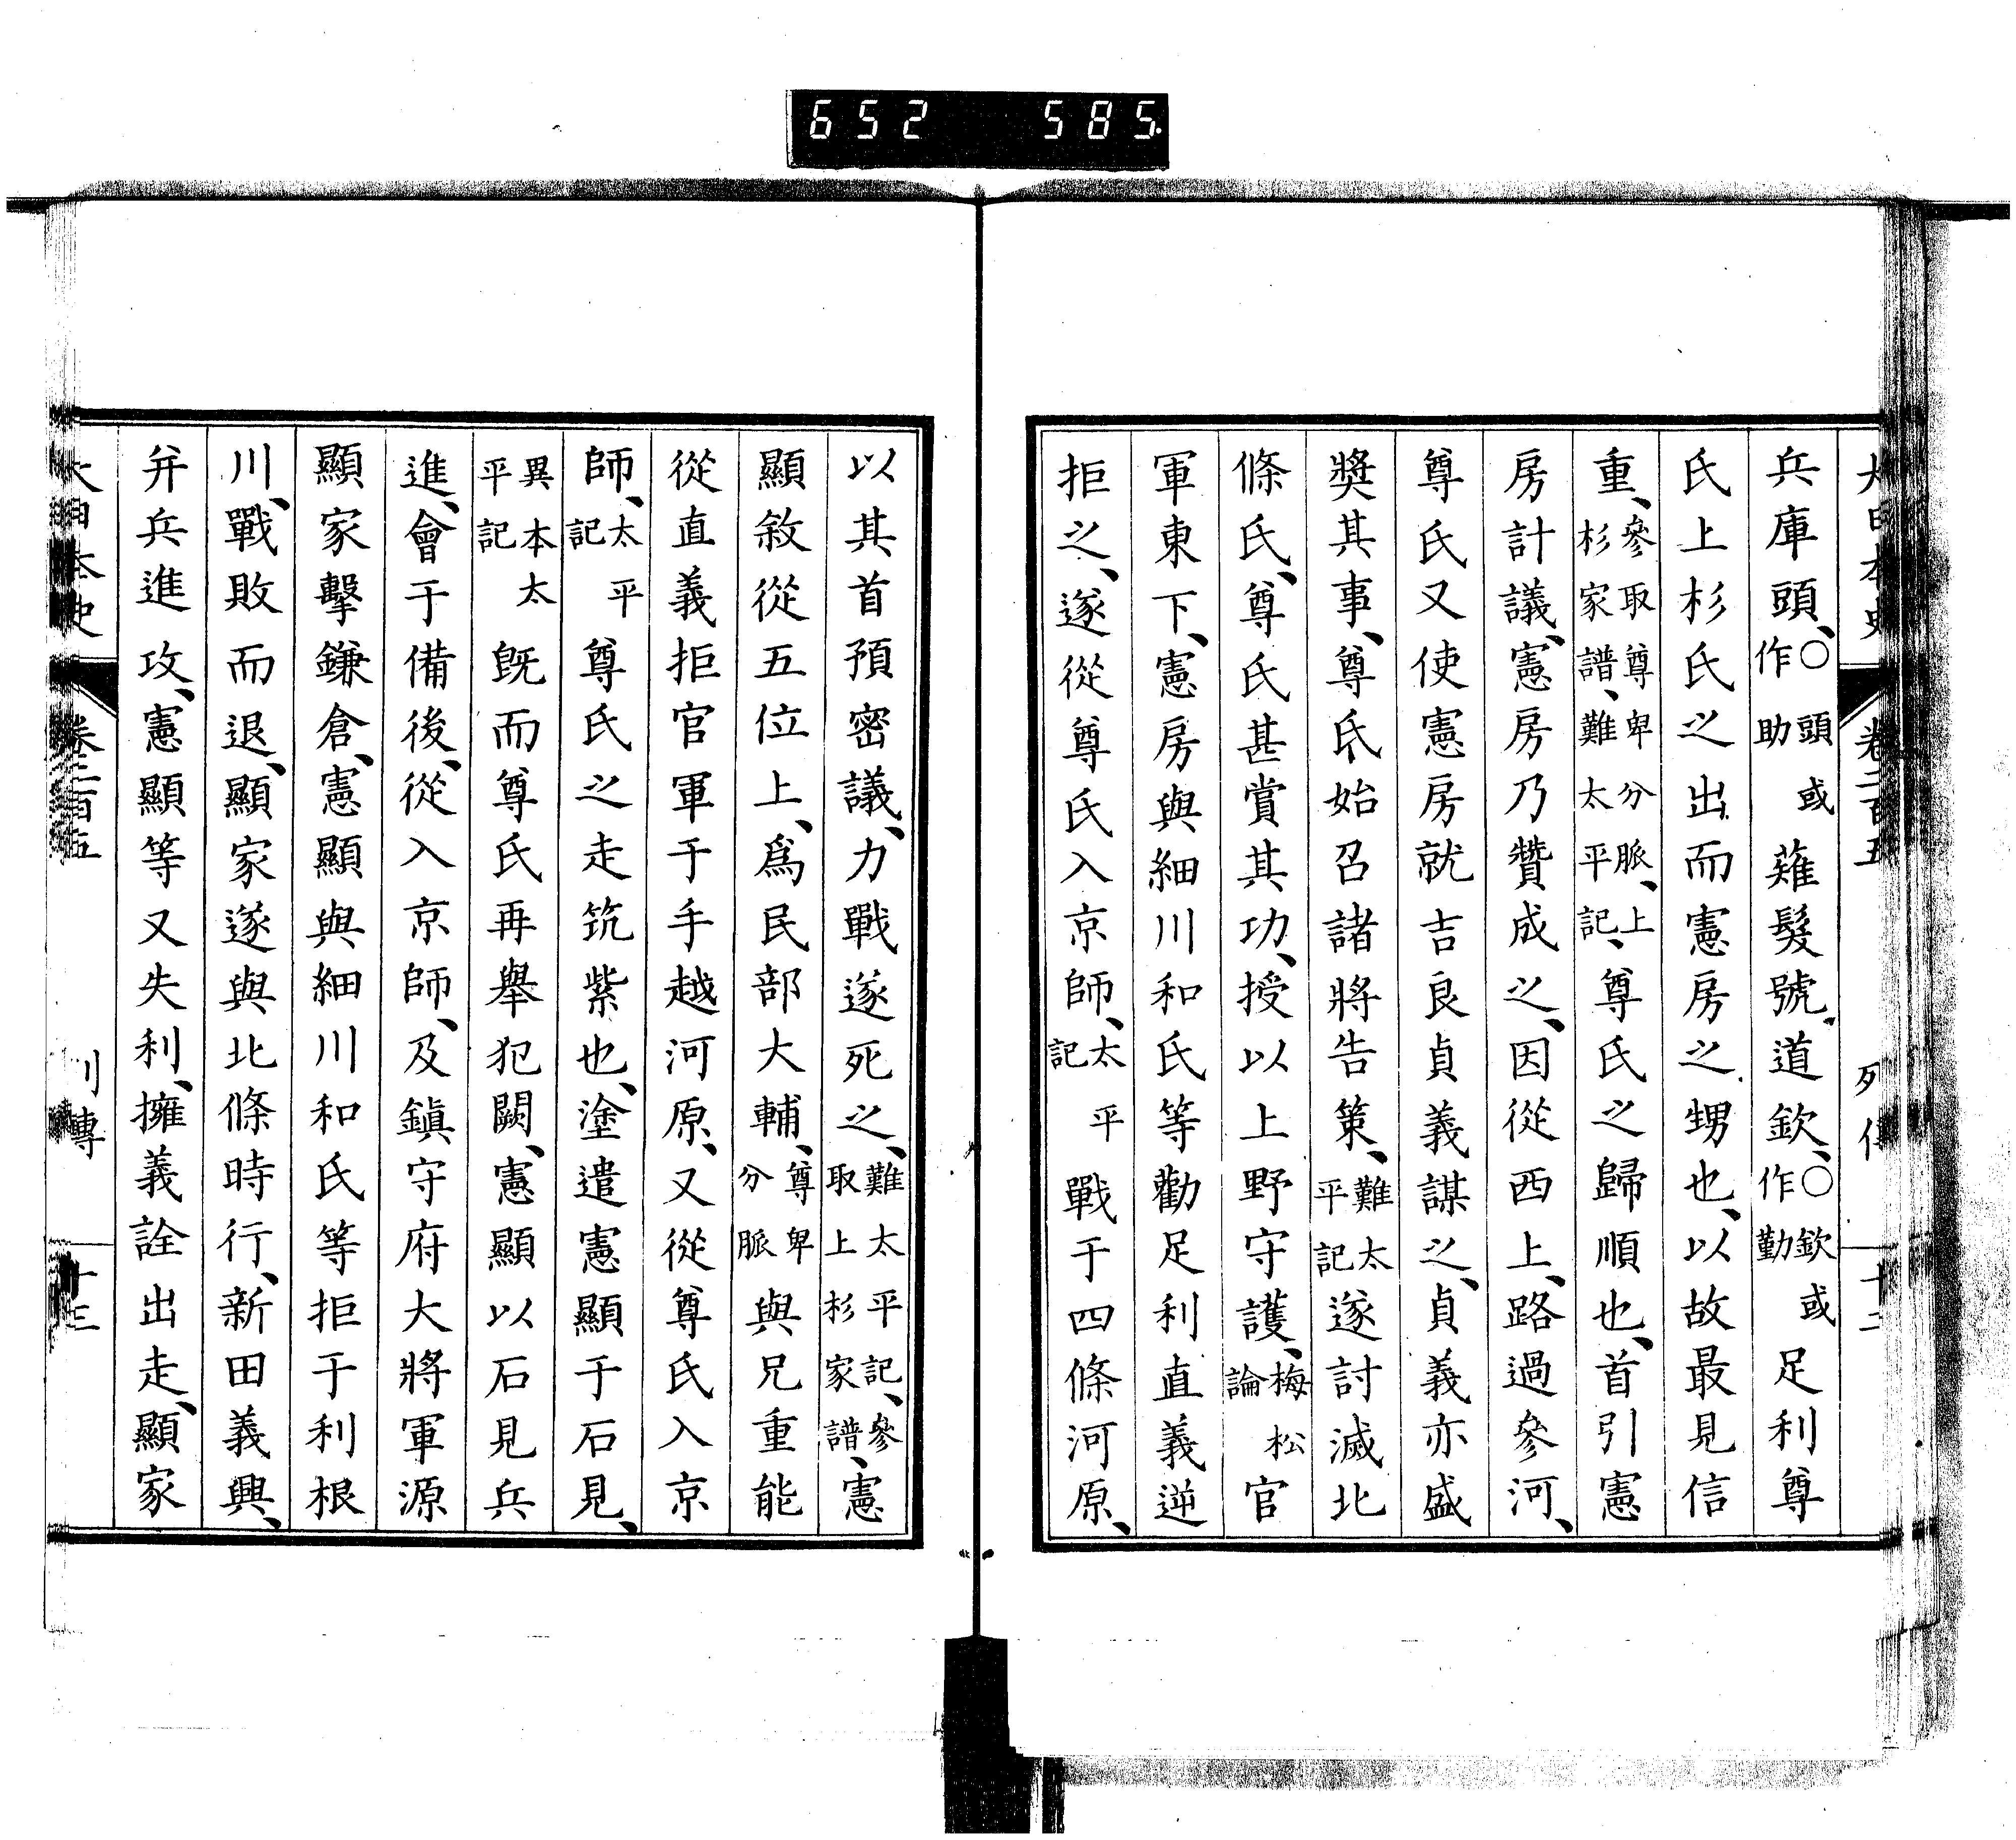 652 585
大日本史 卷二百五 列傳 十二
兵庫頭、〇頭或作助薙髮號道欽、〇欽或作勤足利尊
氏上杉氏之出而憲房之甥也、以故最見信
重、參取尊卑分脈、上杉家譜、難太平記、尊氏之歸順也、首引憲
房計議、憲房乃贊成之、因從西上、路過參河、
尊氏又使憲房就吉良貞義謀之、貞義亦盛
獎其事、尊氏始召諸將告策、難太平記遂討滅北
條氏、尊氏甚賞其功、授以上野守護、梅松論官
軍東下、憲房與細川和氏等勸足利直義逆
拒之、遂從尊氏入京師、太平記戰于四條河原、
以其首預密議、力戰遂死之、難太平記、參取上杉家譜、憲
顯敘從五位上、爲民部大輔、尊卑分脈與兄重能
從直義拒官軍于手越河原、又從尊氏入京
師、太平記尊氏之走筑紫也、塗遣憲顯于石見、
異本太平記既而尊氏再舉犯闕、憲顯以石見兵
進、會于備後、從入京師、及鎭守府大將軍源
顯家擊鎌倉、憲顯與細川和氏等拒于利根
川、戰敗而退、顯家遂與北條時行、新田義興、
弁兵進攻、憲顯等又失利、擁義詮出走、顯家
大日本史 卷二百五 列傳 十三